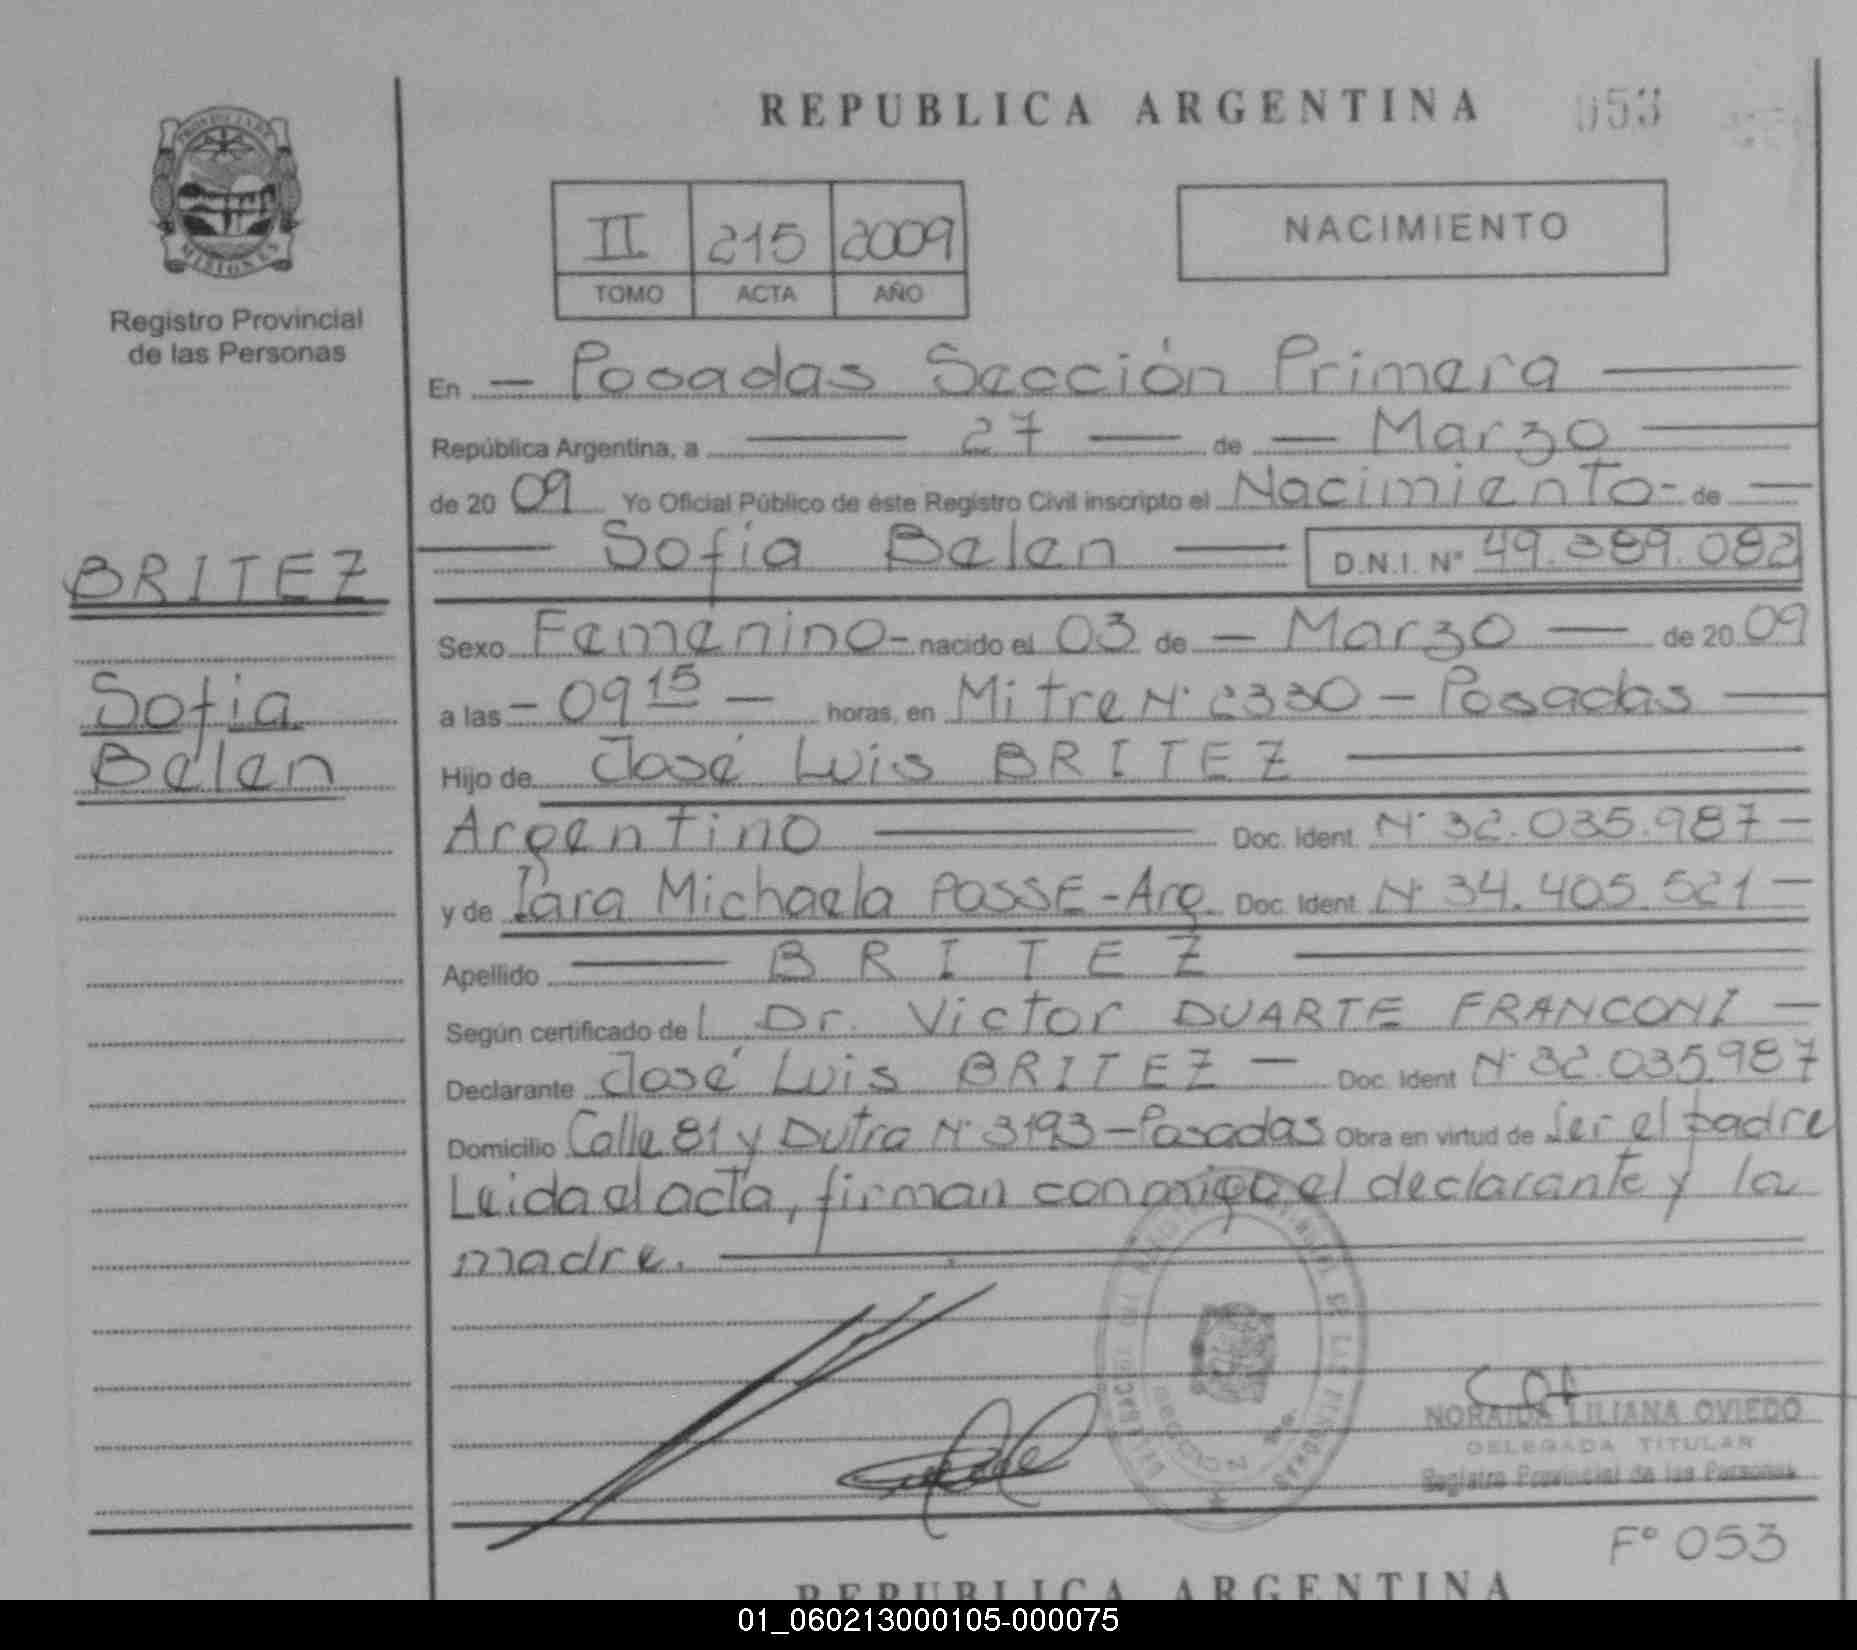 REPUBLICA ARGENTINA
053
PROVINCIA DE
MISIONES
Registro Provincial
de las Personas
II 215 2009
TOMO ACTA AÑO
NACIMIENTO
En — Posadas Sección Primera —
República Argentina, a — 27 — de — Marzo —
de 20 09 Yo Oficial Público de éste Registro Civil inscripto el Nacimiento - de —
— Sofia Belen — D.N.I. Nº 49.389.082
BRITEZ
Sofia
Belen
Sexo Femenino - nacido el 03 de — Marzo — de 20 09
a las - 09 15 — horas, en Mitre Nº 2330 - Posadas —
Hijo de José Luis BRITEZ —
Argentino — Doc. Ident. Nº 32.035.987 —
y de Iara Michaela POSSE - Arg. Doc. Ident. Nº 34.405.521 —
Apellido — BRITEZ —
Según certificado de l Dr. Victor DUARTE FRANCONI —
Declarante José Luis BRITEZ — Doc. Ident Nº 32.035.987
Domicilio Calle 81 y Dutra Nº 3193 - Posadas Obra en virtud de Ser el padre
Leida el acta, firman conmigo el declarante y la
madre. —
NORAIDA LILIANA OVIEDO
DELEGADA TITULAR
Registro Provincial de las Personas
Fº 053
REPUBLICA ARGENTINA
01_060213000105-000075